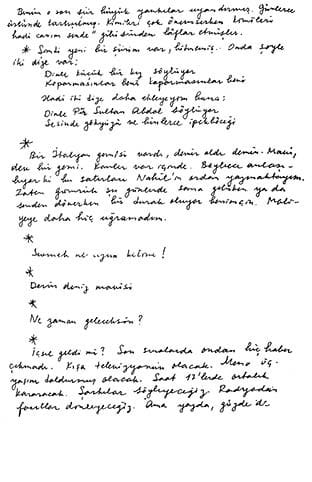 Bunun o son şiir büyük yankılar uyandırmış. Günlerce
üstünde tartışılmış. Kimileri çok önemserken kimileri
hadi canım sende" gibisinden lâflar etmişler.
* Sonki yeni bir şiirim var, bitmemiş. Onda şöyle
iki dize var:
Dinle küçük bir kız söylüyor
Koparmasınlar beni koparmasınlar beni
Hadi iki dize daha ekleyeyim buna:
Dinle Pir Sultan Abdal söylüyor
Sesinde gökyüzü ve binlerce ipekböceği
*
Bir İtalyan gemisi vardı, demir aldı demin. Mavi,
bir gemi. içinde. Böylece
ki bu satırları Nahit'in oradan yazmaktayım.
Zaten şu günlerde gelirken ya da
dönerken bir durak oluyor benim için.
daha hiç uğramadım.
*
Sevmek ne uzun kelime!
*
Derin deniz mavisi
*
Ne zaman geleceksin?
*
geldi mi? Son sıralarda ondan hiç haber
çıkmadı. Kışa televizyonun olacak. üç
yaşını doldurmuş olacak. Saat 17'lerde ortalık
kararacak. Şarkılar söyleyeceğiz. Radyodan
dinleyeceğiz. Ama yazda, güzde de